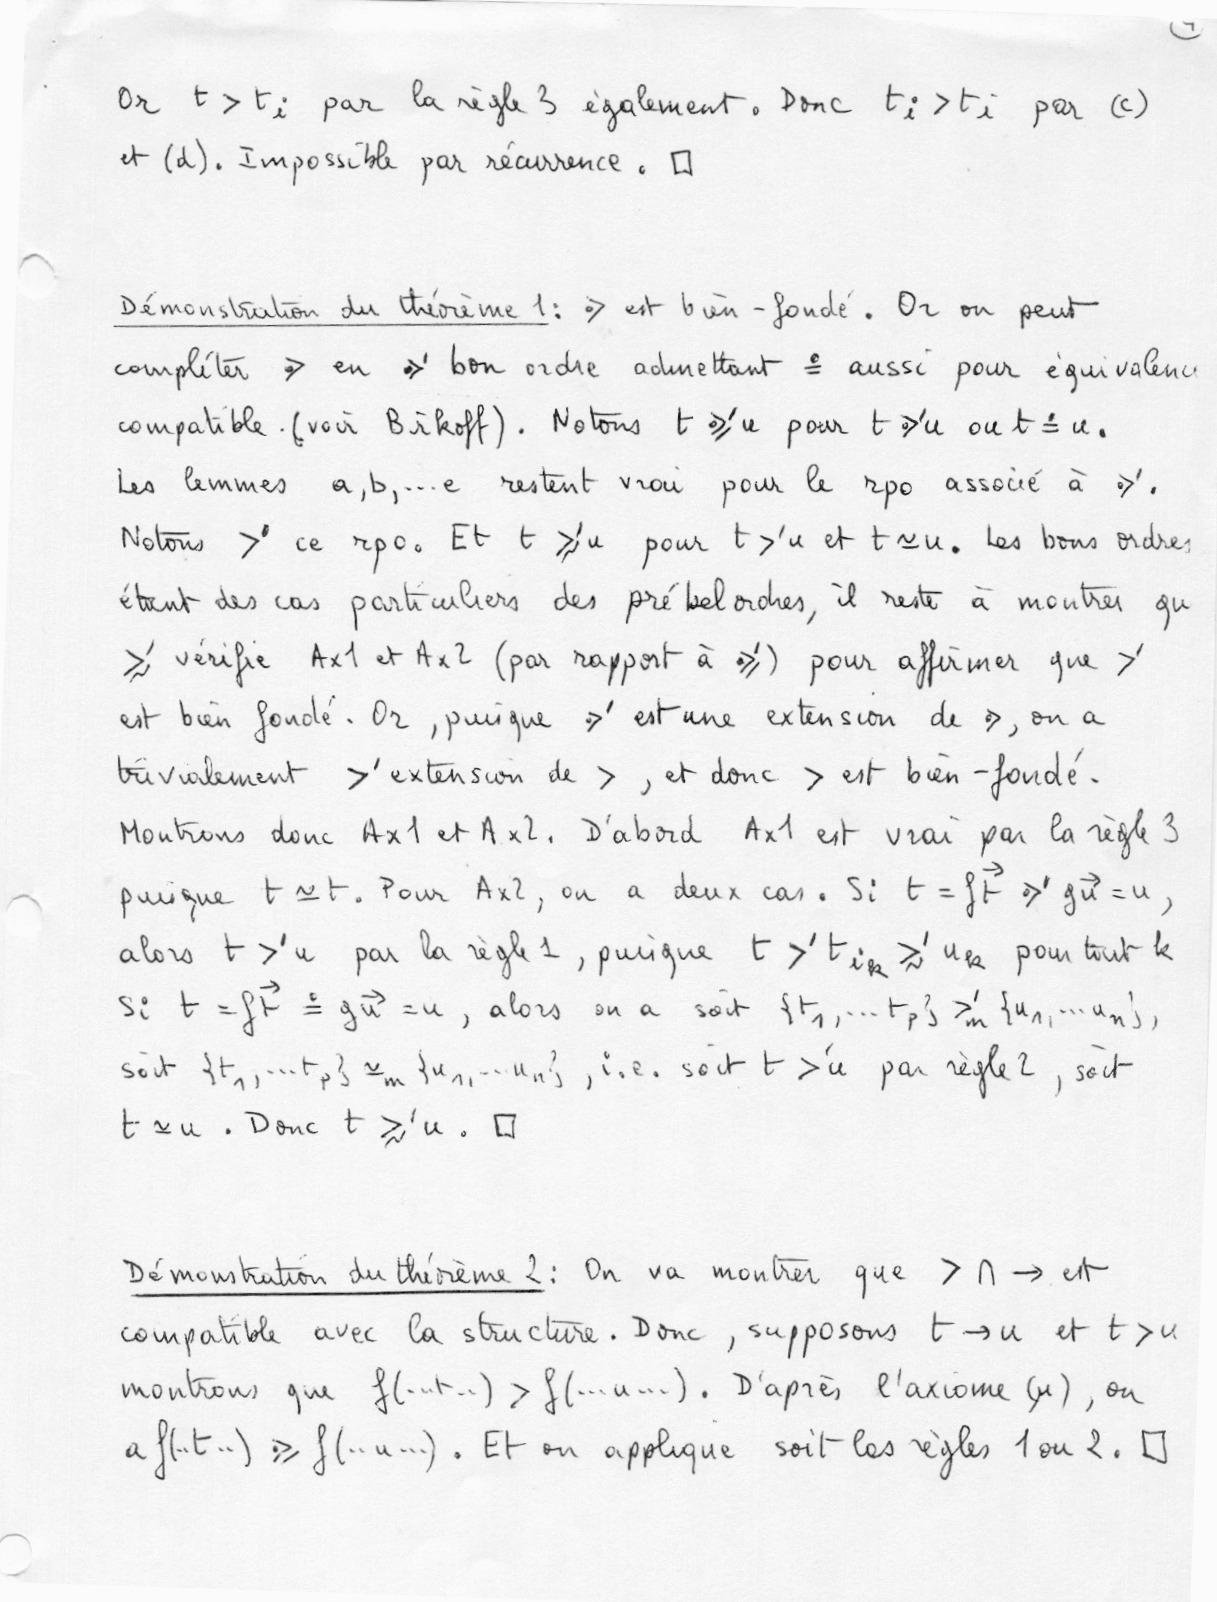 4
Or t > ti par la règle 3 également. Donc ti > ti par (c)
et (d). Impossible par récurrence. □
Démonstration du théorème 1: ⋗ est bien-fondé. Or on peut
compléter ⋗ en ⋗' bon ordre admettant ≗ aussi pour équivalence
compatible. (voir Birkoff). Notons t ⋗̳' u pour t ⋗' u ou t ≗ u.
Les lemmes a, b, ... e restent vrai pour le rpo associé à ⋗'.
Notons >' ce rpo. Et t ≳' u pour t >' u et t ≃ u. Les bons ordres
étant des cas particuliers des prébelordres, il reste à montrer qu
≳' vérifie Ax1 et Ax2 (par rapport à ⋗̳') pour affirmer que >'
est bien fondé. Or, puisque ⋗' est une extension de ⋗, on a
trivialement >' extension de >, et donc > est bien-fondé.
Montrons donc Ax1 et Ax2. D'abord Ax1 est vrai par la règle 3
puisque t ≃ t. Pour Ax2, on a deux cas. Si t = f t⃗ ⋗' g u⃗ = u,
alors t >' u par la règle 1, puisque t >' t_{ik} ≳' u_k pour tout k
Si t = f t⃗ ≗ g u⃗ = u, alors on a soit {t₁, ... t_p} >'_m {u₁, ... u_n},
soit {t₁, ... t_p} ≃_m {u₁, ... u_n}, i.e. soit t >' u par règle 2, soit
t ≃ u. Donc t ≳' u. □
Démonstration du théorème 2: On va montrer que > ∩ → est
compatible avec la structure. Donc, supposons t → u et t > u
montrons que f(...t..) > f(...u...). D'après l'axiome (μ), on
a f(..t..) ⋗̳ f(..u...). Et on applique soit les règles 1 ou 2. □